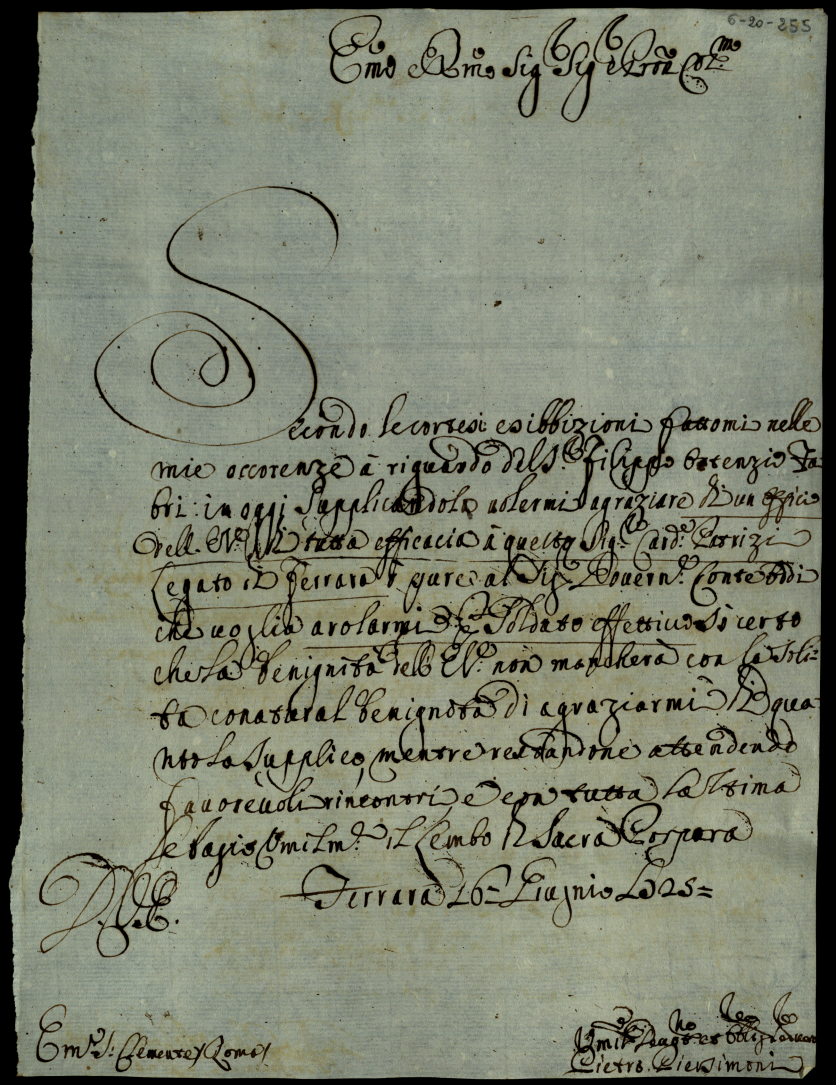 6-20-255
Emo e Rmo Sig Sig e Pron Colmo
Secondo le cortesi esibbizioni fattomi nelle
mie occorenze à riguardo del Sr Filippo Fa-
bri: in oggi Supplicandola uolermi agraziare di un offizio
dell' Ema di tutta efficacia à questo Sigr Carde Patrizi
Legato di Ferrara ò pure al Sig Gouernre Conte
che uoglia arolarmi Per Soldato effettiuo Si certo
che La benignità dell' Ema non mancherà con La Soli-
ta conatural benignità di agraziarmi di qua-
nto La Supplico, mentre restandone attendendo
fauoreuoli rincontri, e con tutta La Stima
Le bagio Omilmte il Lembo di Sacra Porpora
Ferrara 16= Giugnio 1725=
D. V. E.
Emo S: Clemente / Roma /
Umilmo et
Pietro Piersimoni